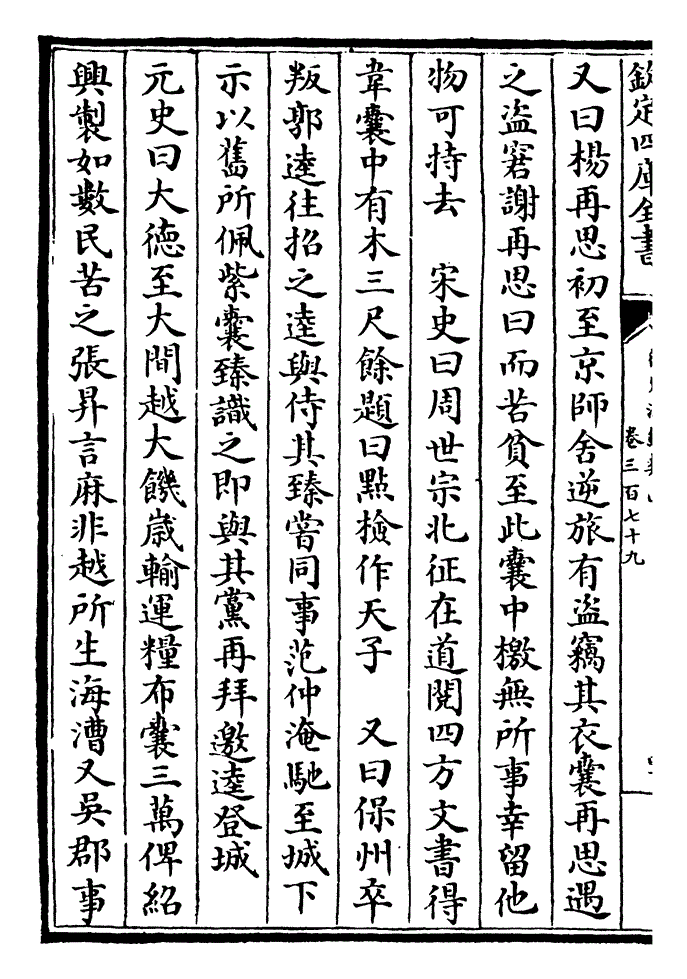 欽定四庫全書
卷三百七十九
又曰楊再思初至京師舍逆旅有盜竊其衣囊再思遇
之盜窘謝再思曰而苦貧至此囊中檄無所事幸留他
物可持去　宋史曰周世宗北征在道閱四方文書得
韋囊中有木三尺餘題曰點檢作天子　又曰保州卒
叛郭逵往招之逵與侍其臻嘗同事范仲淹馳至城下
示以舊所佩紫囊臻識之即與其黨再拜邀逵登城
元史曰大德至大間越大饑嵗輸運糧布囊三萬俾紹
興製如數民苦之張昇言麻非越所生海漕又吳郡事